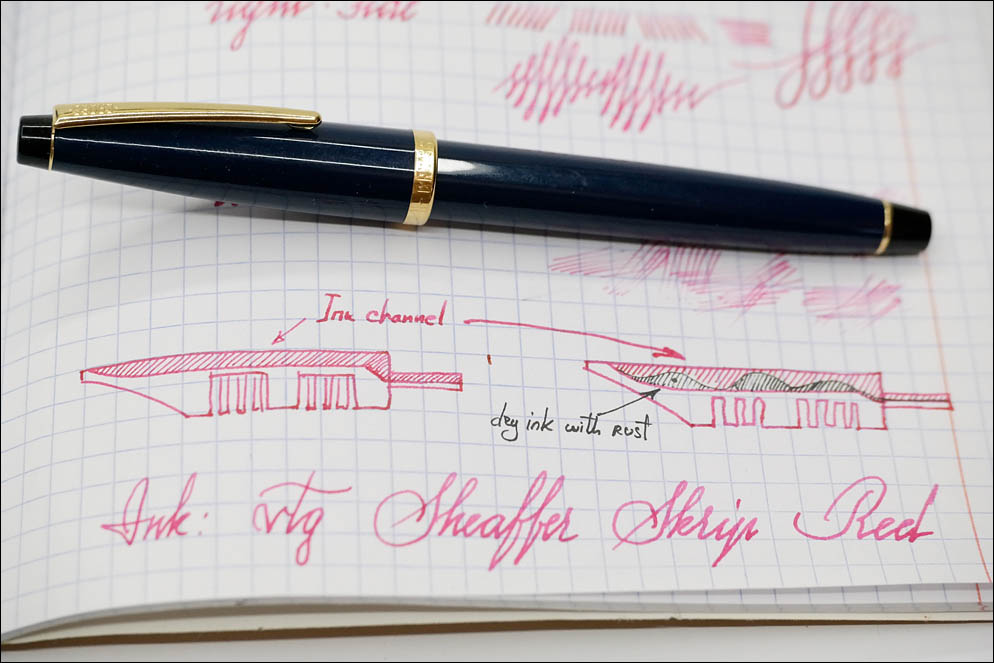 right side
Ink channel
dry ink with rust
Ink: vtg Sheaffer Skrip Red